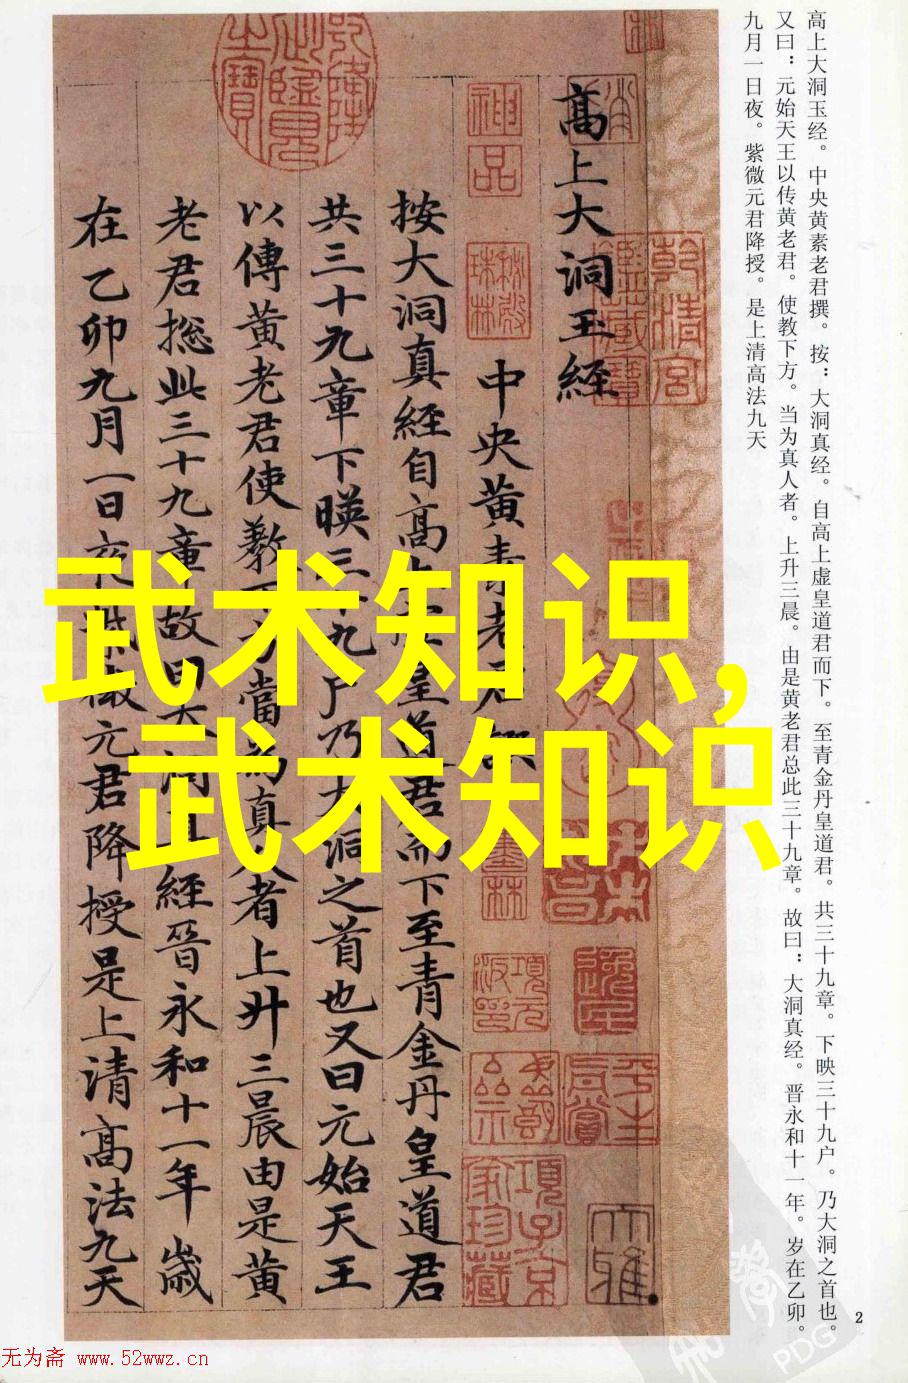 高上大洞玉经。中央黄素老君撰。按：大洞真经。自高上虚皇道君而下。至青金丹皇道君。共三十九章。下映三十九户。乃大洞之首也。
又曰：元始天王以传黄老君。使教下方。当为真人者。上升三晨。由是黄老君总此三十九章。故曰：大洞真经。晋永和十一年。岁在乙卯。
九月一日夜。紫微元君降授。是上清高法九天
高上大洞玉經
中央黄素老君
按大洞真經自高上皇道君而下至青金丹皇道君
共三十九章下暎三十九户乃大洞之首也又曰元始天王
以傳黄老君使教下方當為真人者上升三晨由是黄
老君揔此三十九章故曰大洞真經晉永和十一年歲
在乙卯九月一日夜紫微元君降授是上清高法九天
神品
乾清宫鑑藏寶
項子京家珍藏
武术知识,
武术知识
2
无为斋 www.52wwz.cn
PDG